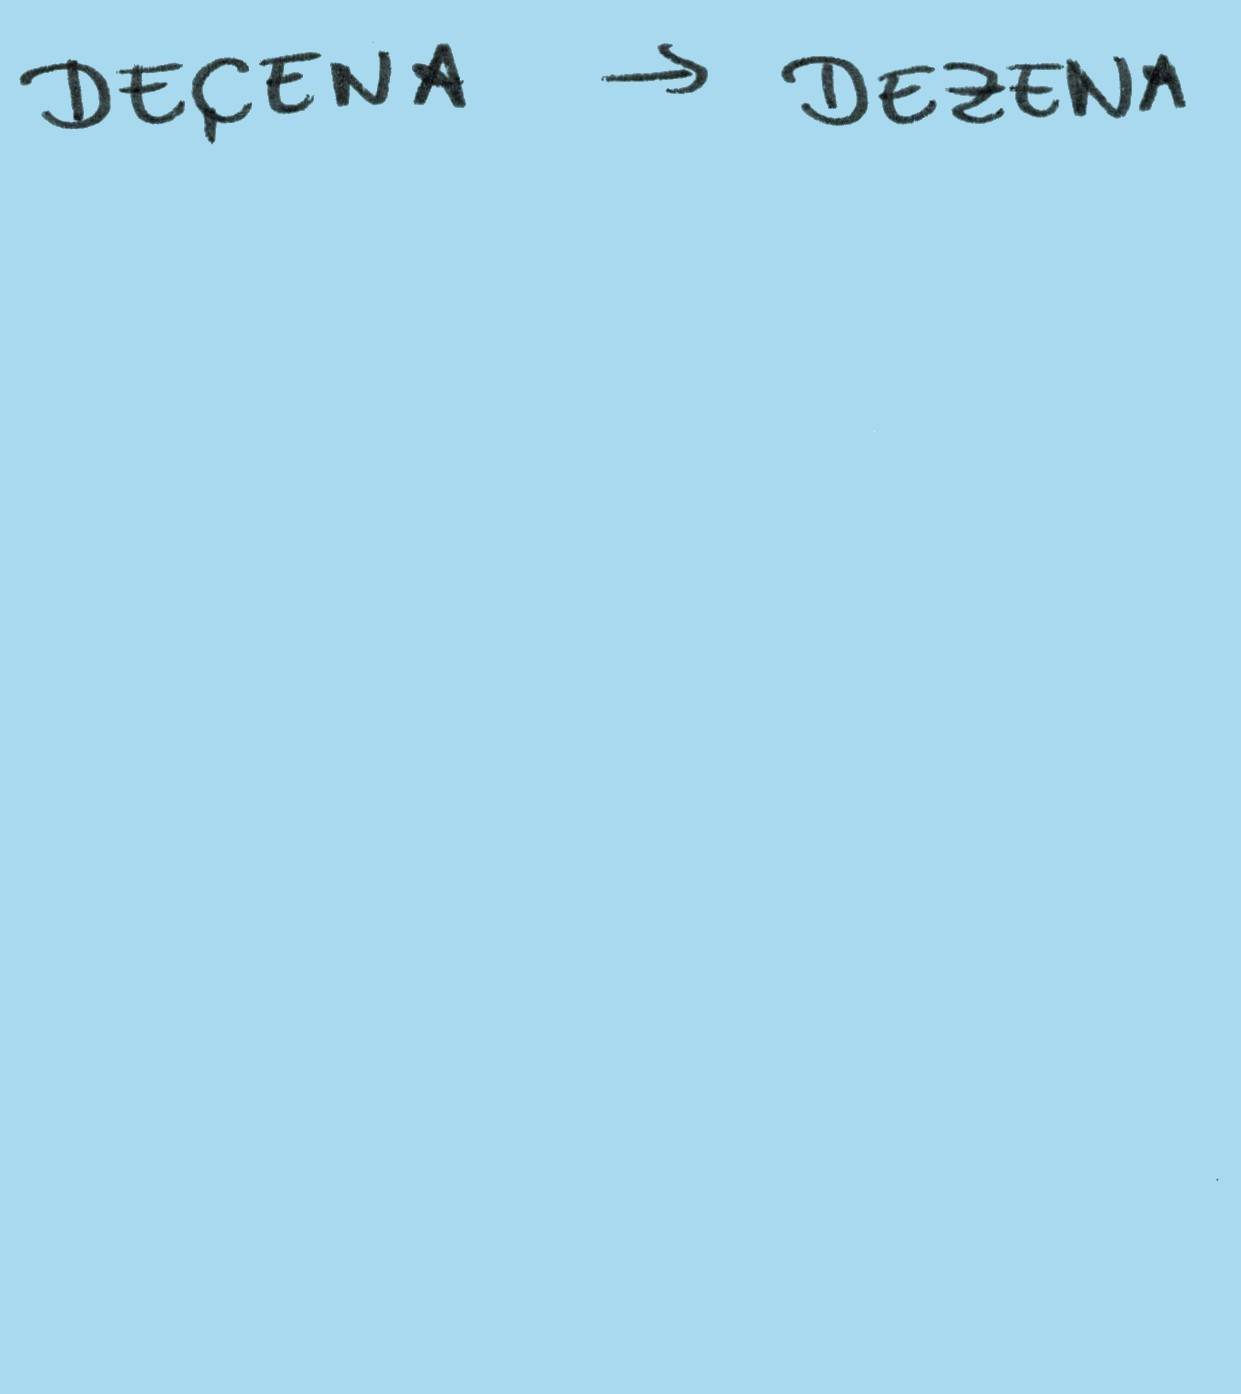 DEÇENA → DEZENA